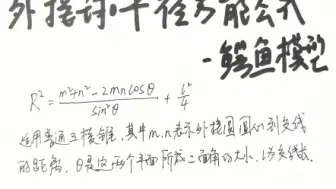 外接球半径万能公式
-鳄鱼模型
R² = (m²+n²-2mncosθ)/sin²θ + l²/4
适用普通三棱锥,其中m,n表示外接圆圆心到交线
的距离,θ是这两个平面所成二面角的大小,l为交线长.